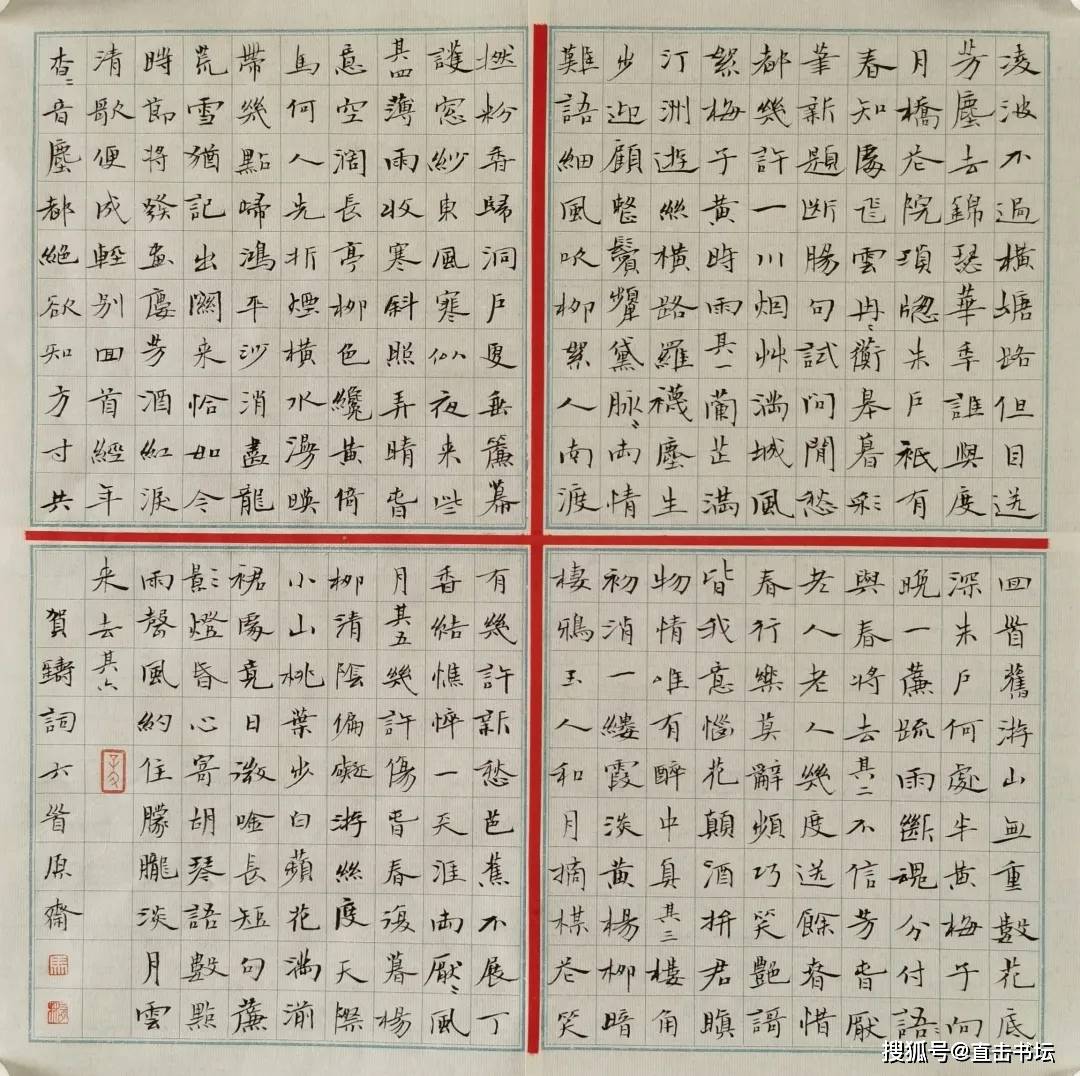 凌波不過橫塘路但目送
芳塵去錦瑟華年誰與度
月橋花院瑣窗朱戶衹有
春知處飛雲冉冉蘅皋暮彩
筆新題斷腸句試問閒愁
都幾許一川烟艸滿城風
絮梅子黃時雨其一蘭芷滿
汀洲遊絲橫路羅襪塵生
步迎顧整鬟顰黛脉脉兩情
難語細風吹柳絮人南渡
回首舊游山無重數花底
深朱戶何處半黃梅子向
晚一簾疏雨斷魂分付語
與春將去其二不信芳春厭
老人老人幾度送餘春惜
春行樂莫辭頻巧笑艷歌
皆我意惱花顛酒拚君瞋
物情唯有醉中真其三樓角
初消一縷霞淡黃楊柳暗
棲鴉玉人和月摘楳花笑
撚粉香歸洞戶更垂簾幕
護窗紗東風寒似夜来些
其四薄雨收寒斜照弄晴春
意空闊長亭柳色纔黃倚
馬何人先折煙橫水漫映
帶幾點歸鴻平沙消盡龍
荒雪猶記出關来恰如今
時節將發畫樓芳酒紅淚
清歌便成輕別回首經年
杳杳音塵都絕欲知方寸共
有幾許新愁芭蕉不展丁
香結憔悴一天涯兩厭厭風
月其五幾許傷春春復暮楊
柳清陰偏礙游絲度天際
小山桃葉步白蘋花滿湔
裙處竟日微吟長短句簾
影燈昏心寄胡琴語數點
雨聲風約住朦朧淡月雲
来去其六
賀鑄詞六首原齋
搜狐号@直击书坛